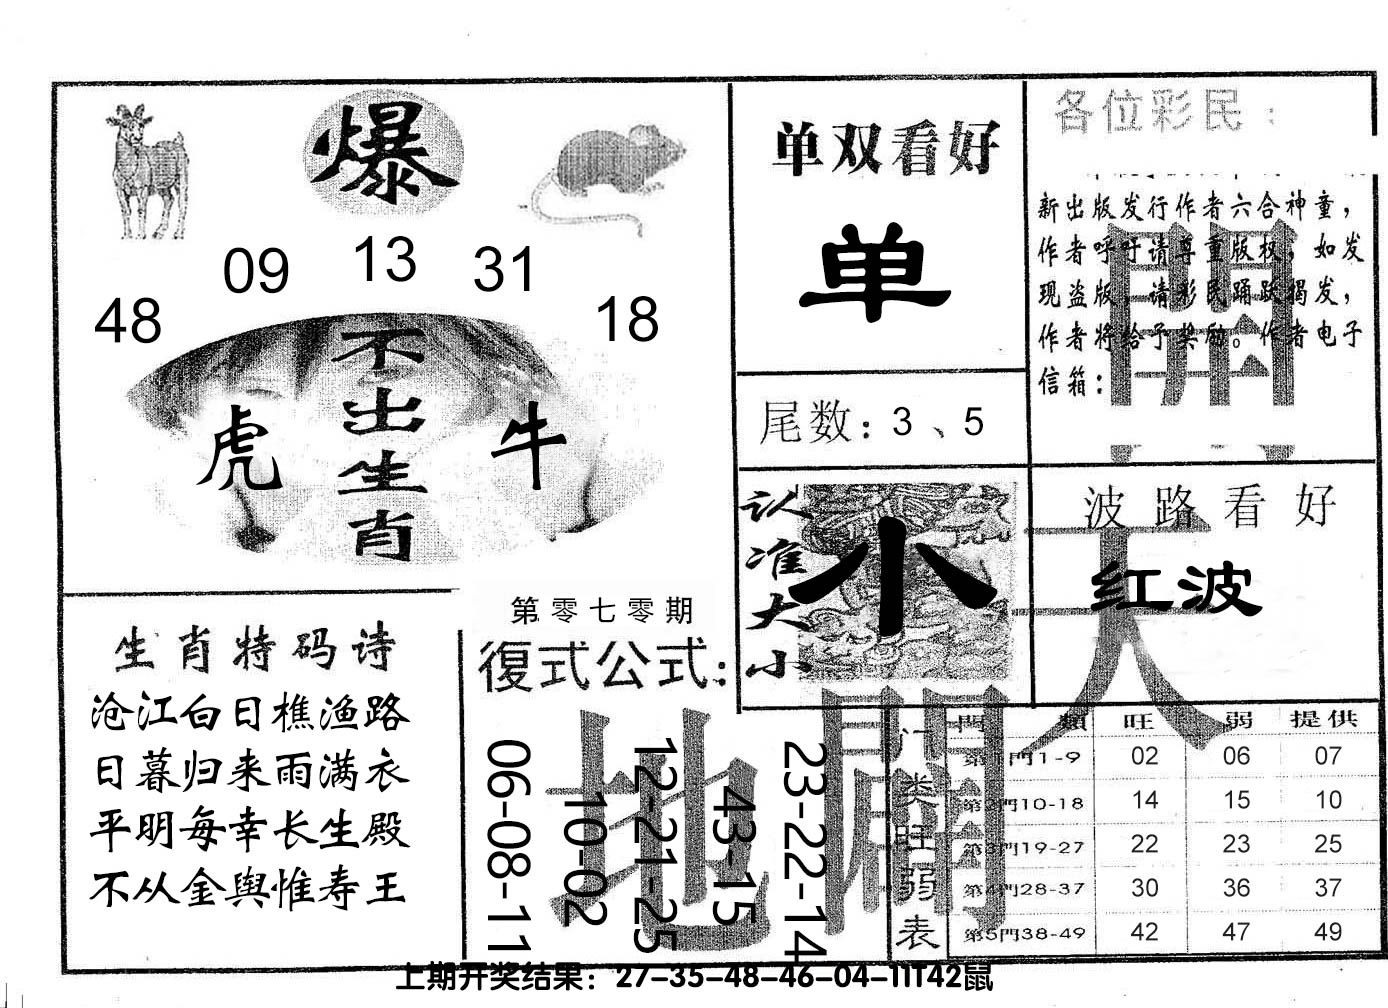 爆
09 13 31
48 18
不出生肖
虎 牛
单双看好
单
尾数：3、5
各位彩民：
新出版发行作者六合神童，
作者呼吁请尊重版权，如发
现盗版，请彩民踊跃揭发，
作者将给予奖励。作者电子
信箱：
開
认准大小
小
波路看好
红波
天
生肖特码诗
沧江白日樵渔路
日暮归来雨满衣
平明每幸长生殿
不从金舆惟寿王
第零七零期
復式公式：
06-08-11
10-02
12-21-25
43-15
23-22-14
地
門类旺弱表
門類 旺 弱 提供
第1門1-9 02 06 07
第2門10-18 14 15 10
第3門19-27 22 23 25
第4門28-37 30 36 37
第5門38-49 42 47 49
上期开奖结果：27-35-48-46-04-11T42鼠